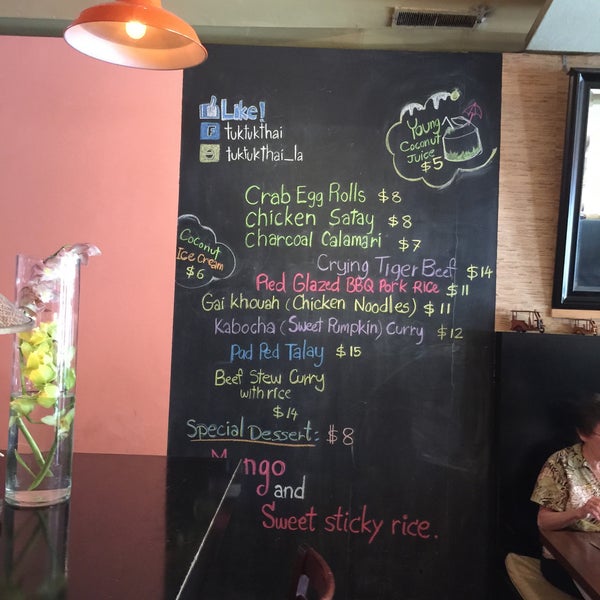 Like!
tuktukthai
tuktukthai_la
Young
Coconut
Juice
$5
Crab Egg Rolls $8
Chicken Satay $8
Charcoal Calamari $7
Coconut
Ice Cream
$6
Crying Tiger Beef $14
Red Glazed BBQ Pork Rice $11
Gai khouah (Chicken Noodles) $11
Kabocha (Sweet Pumpkin) Curry $12
Pad Ped Talay $15
Beef Stew Curry
with rice
$14
Special Dessert: $8
Mango
and
Sweet sticky rice.